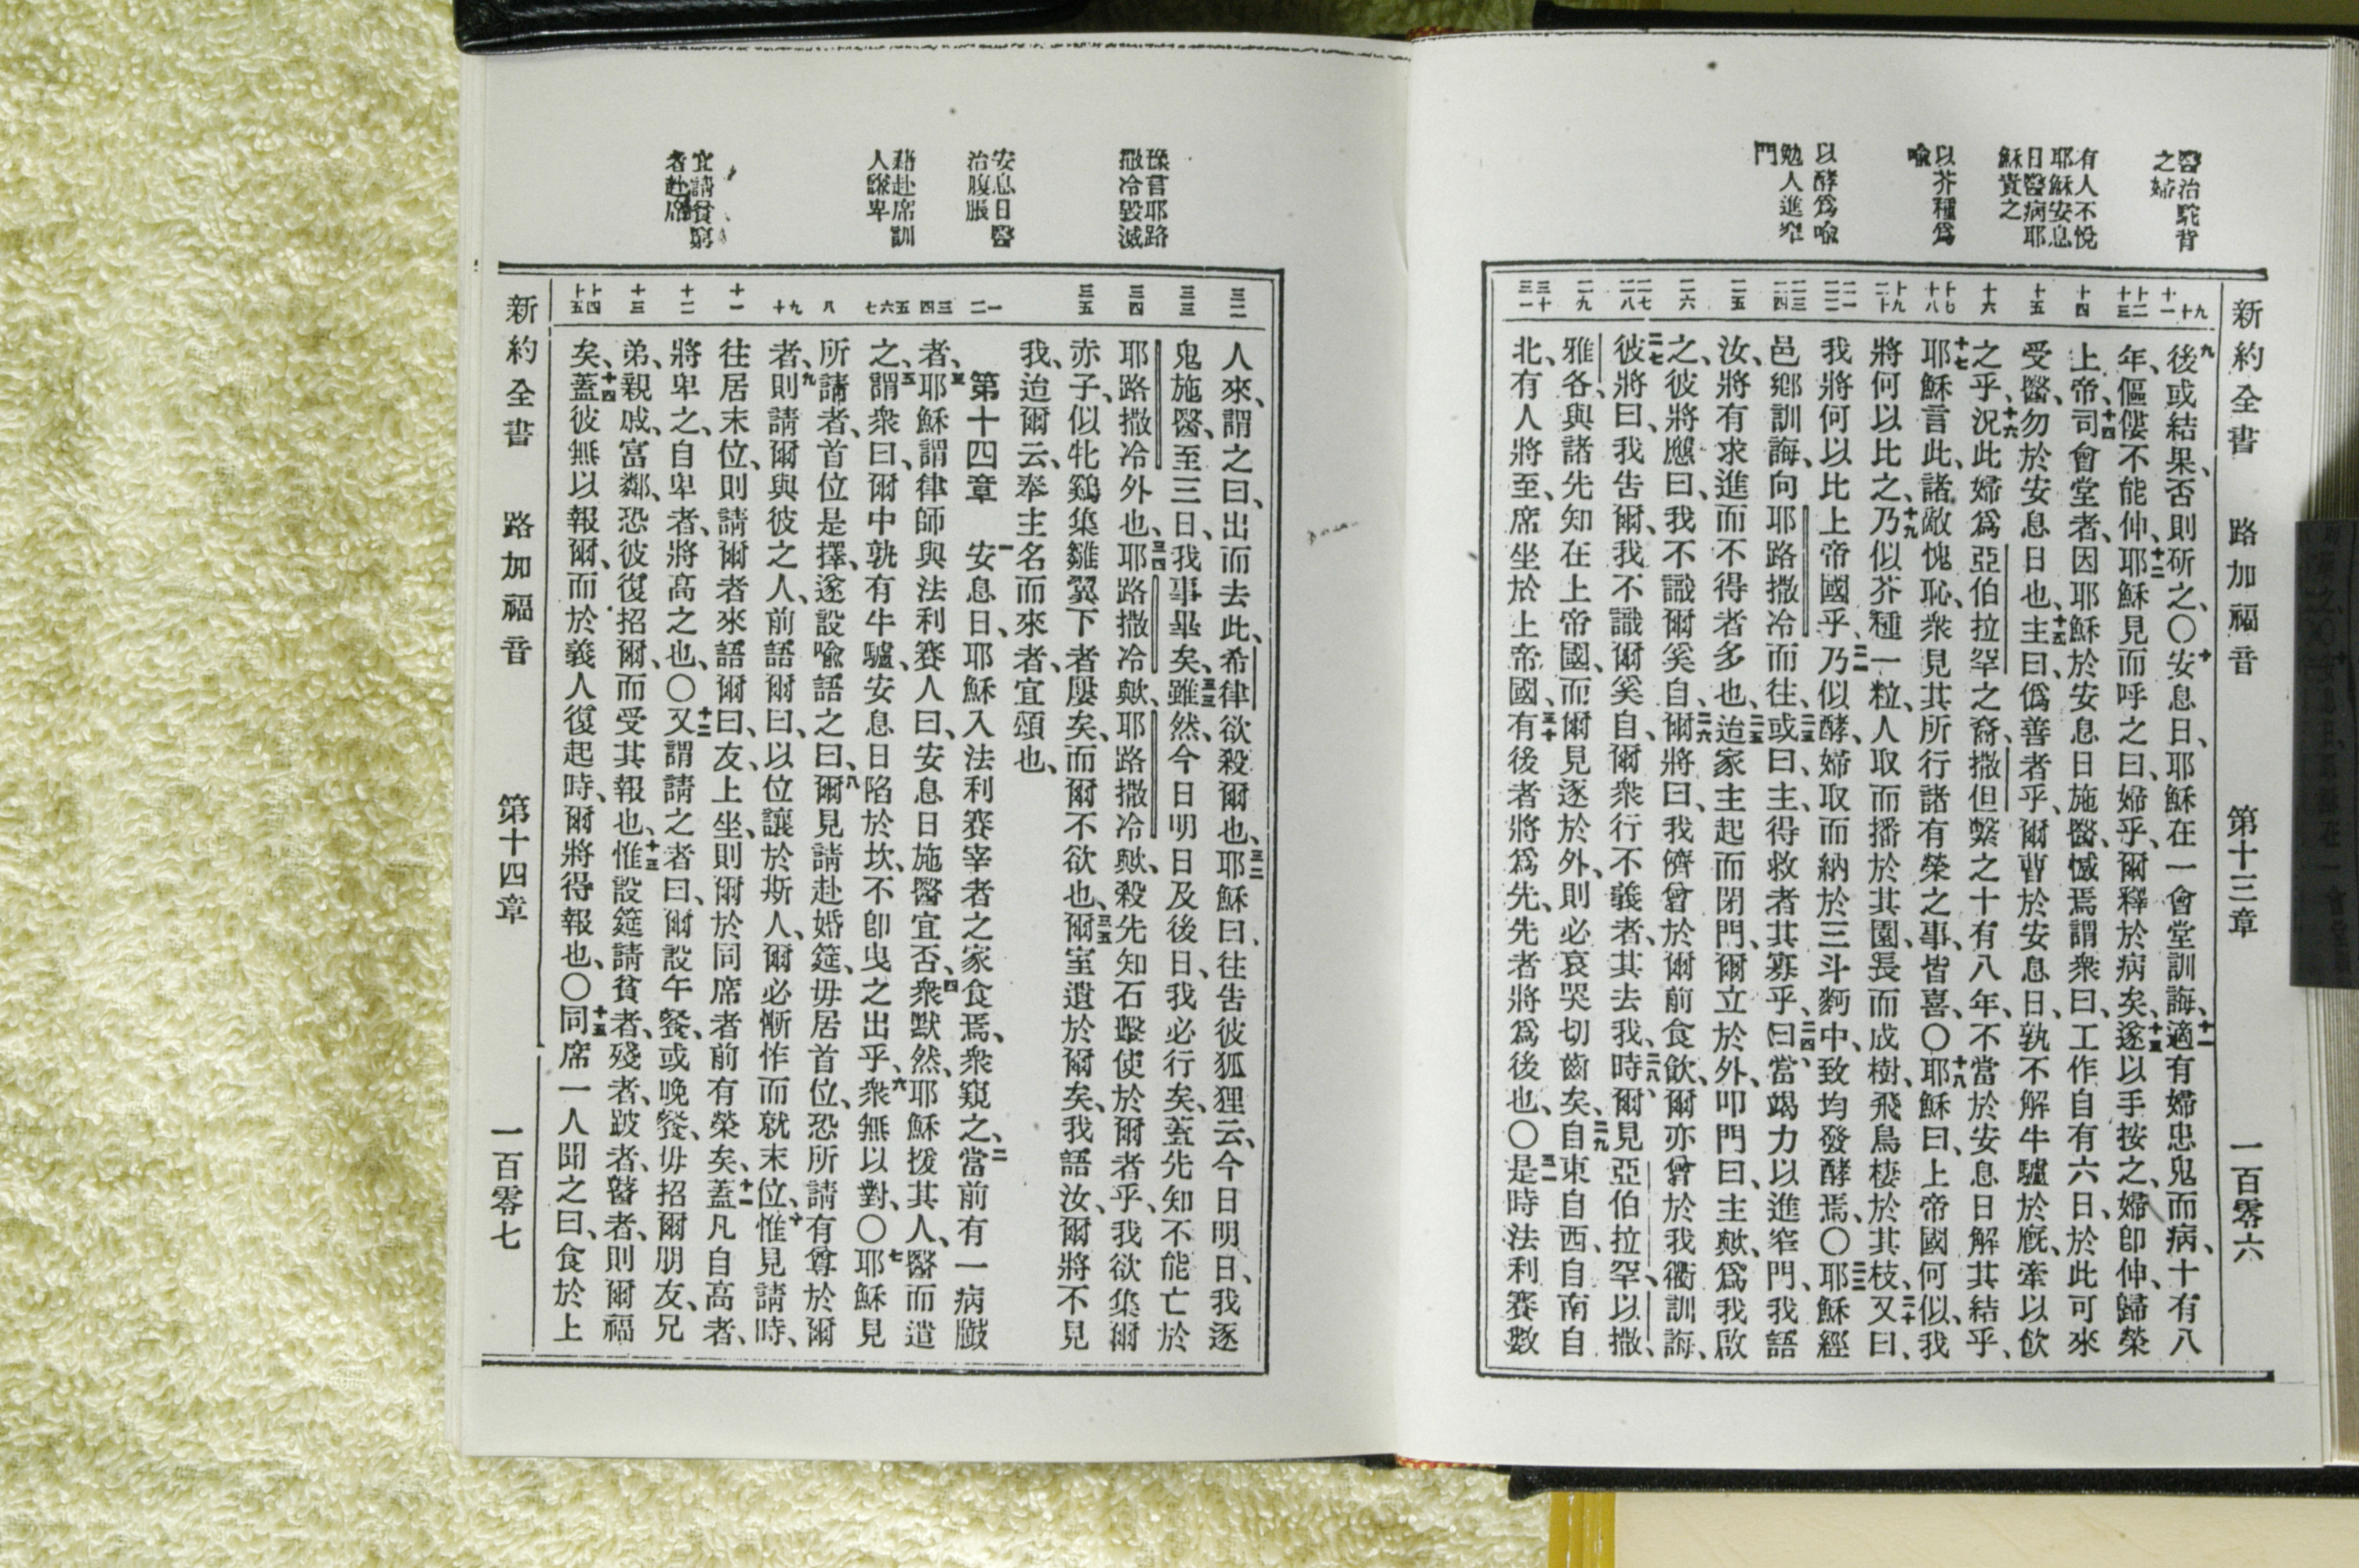 新約全書 路加福音 第十三章 一百零六
醫治駝背
之婦
有人不悅
耶穌安息
日醫病耶
穌責之
以芥種爲
喩
以酵爲喩
勉人進窄
門
九 十
十一
十二
十三
十四
十五
十六
十七
十八
十九
二十
二一
二二
二三
二四
二五
二六
二七
二八
二九
三十
三一
九後或結果、否則斫之、〇十安息日、耶穌在一會堂訓誨、十一適有婦患鬼而病、十有八
年、傴僂不能伸、十二耶穌見而呼之曰、婦乎、爾釋於病矣、十三遂以手按之、婦卽伸、歸榮
上帝、十四司會堂者、因耶穌於安息日施醫、憾焉、謂衆曰、工作自有六日、於此可來
受醫、勿於安息日也、十五主曰、僞善者乎、爾曹於安息日、孰不解牛驢於廐、牽以飮
之乎、十六況此婦爲亞伯拉罕之裔、撒但繫之十有八年、不當於安息日解其結乎、
十七耶穌言此、諸敵愧恥、衆見其所行諸有榮之事、皆喜、〇十八耶穌曰、上帝國何似、我
將何以比之、十九乃似芥種一粒、人取而播於其園、長而成樹、飛鳥棲於其枝、二十又曰、
我將何以比上帝國乎、二一乃似酵、婦取而納於三斗麪中、致均發酵焉、〇二二耶穌經
邑鄕訓誨、向耶路撒冷而往、二三或曰、主、得救者其寡乎、二四曰、當竭力以進窄門、我語
汝、將有求進而不得者多也、二五迨家主起而閉門、爾立於外、叩門曰、主歟、爲我啟
之、彼將應曰、我不識爾奚自、二六爾將曰、我儕曾於爾前食飮、爾亦曾於我衢訓誨、
二七彼將曰、我告爾、我不識爾奚自、爾衆行不義者、其去我、二八時爾見亞伯拉罕、以撒、
雅各、與諸先知在上帝國、而爾見逐於外、則必哀哭切齒矣、二九自東自西、自南自
北、有人將至、席坐於上帝國、三十有後者將爲先、先者將爲後也、〇三一是時法利賽數
豫言耶路
撒冷毀滅
安息日醫
治腹脹
藉赴席訓
人謙卑
宜請貧窮
者赴席
三二
三三
三四
三五
一 二
三 四
五 六 七
八
九 十
十一
十二
十三
十四
十五
人來、謂之曰、出而去此、希律欲殺爾也、三二耶穌曰、往告彼狐狸云、今日明日、我逐
鬼施醫、至三日、我事畢矣、三三雖然、今日明日及後日、我必行矣、蓋先知不能亡於
耶路撒冷外也、三四耶路撒冷歟、耶路撒冷歟、殺先知石擊使於爾者乎、我欲集爾
赤子、似牝鷄集雛翼下者屢矣、而爾不欲也、三五爾室遺於爾矣、我語汝、爾將不見
我、迨爾云、奉主名而來者、宜頌也、
第十四章 一安息日、耶穌入法利賽宰者之家食焉、衆窺之、二當前有一病臌
者、三耶穌謂律師與法利賽人曰、安息日施醫宜否、四衆默然、耶穌援其人、醫而遣
之、五謂衆曰、爾中孰有牛驢、安息日陷於坎、不卽曳之出乎、六衆無以對、〇七耶穌見
所請者、首位是擇、遂設喩語之曰、八爾見請赴婚筵、毋居首位、恐所請有尊於爾
者、九則請爾與彼之人、前語爾曰、以位讓於斯人、爾必慚怍而就末位、十惟見請時、
往居末位、則請爾者來語爾曰、友、上坐、則爾於同席者前有榮矣、十一蓋凡自高者、
將卑之、自卑者、將高之也、〇十二又謂請之者曰、爾設午餐、或晚餐、毋招爾朋友、兄
弟、親戚、富鄰、恐彼復招爾、而受其報也、十三惟設筵、請貧者、殘者、跛者、瞽者、則爾福
矣、十四蓋彼無以報爾、而於義人復起時、爾將得報也、〇十五同席一人聞之曰、食於上
新約全書 路加福音 第十四章 一百零七